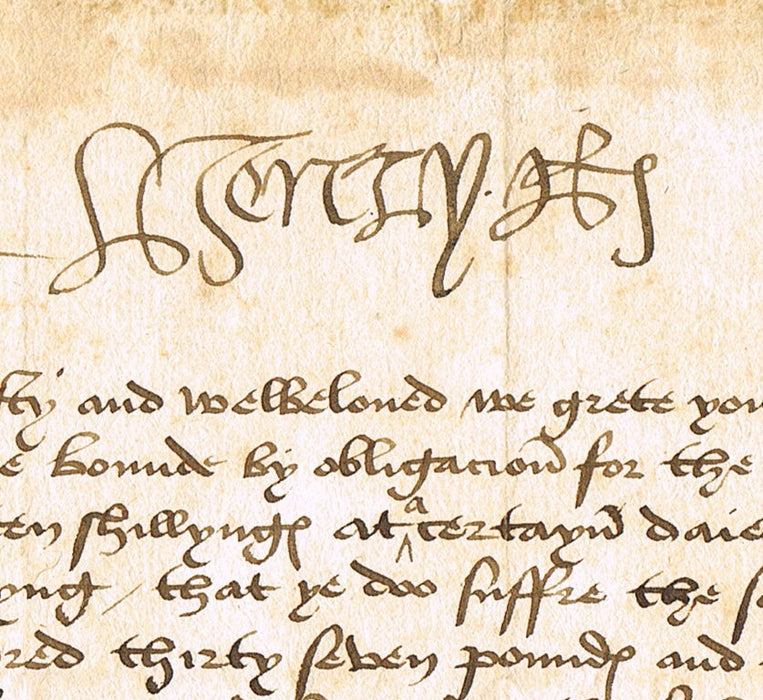 and welbeloued we grete you
bounde by obligacion for the
shillyngs at a certayn daie
yng / that ye doo suffre the
red thirty seven pounds and